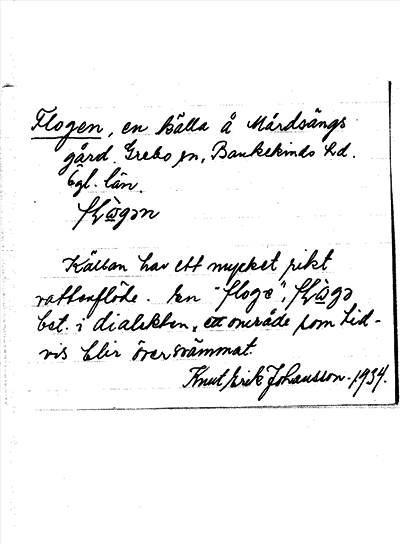 Flogen, en källa å Mårdsängs
gård. Grebo sn, Bankekinds hd.
Ögl. län.
Källan har ett mycket rikt
vattenflöde. En "floge",
bet. i dialekten, ett område som tid-
vis blir översvämmat.
Knut Erik Johansson. 1934.